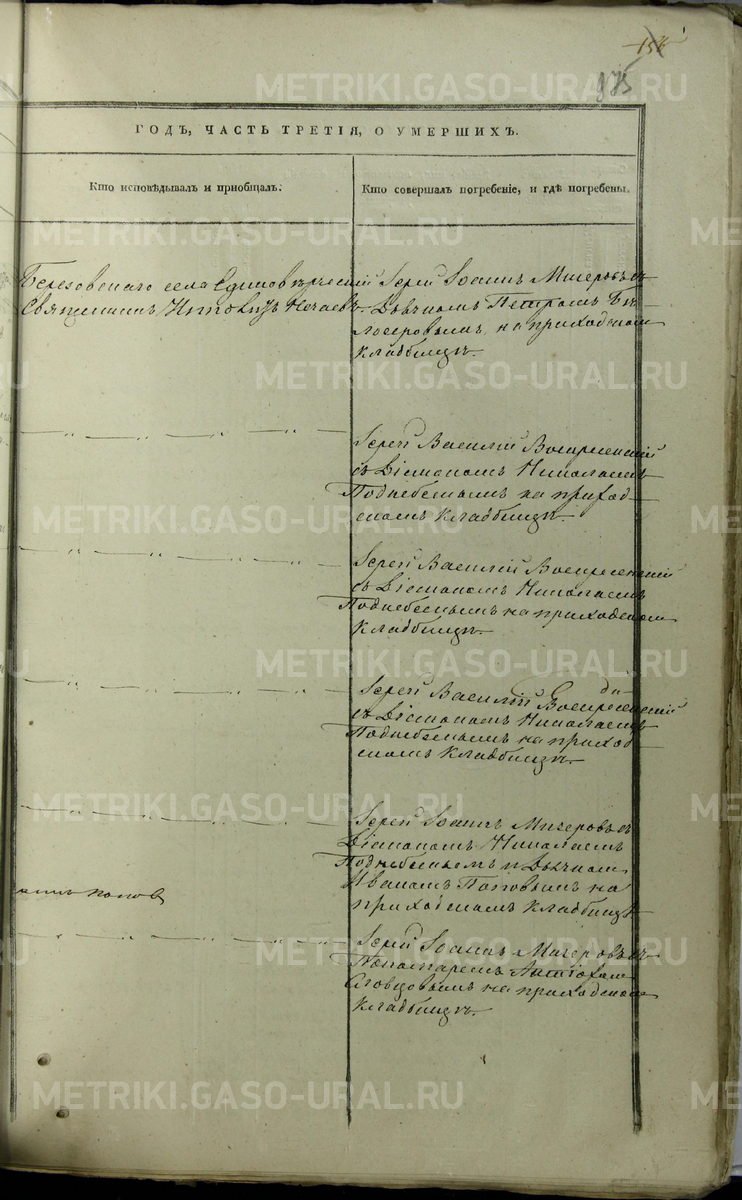 155
875
ГОДЪ, ЧАСТЬ ТРЕТІЯ, О УМЕРШИХЪ.
Кто исповѣдывалъ и пріобщалъ.
Кто совершалъ погребеніе, и гдѣ погребены.
Березовскаго села Единовѣрческій
Священникъ Нечаевъ
Іерей Іоаннъ Мичеровъ съ
Дьячкомъ Петромъ Бѣ-
лозеровымъ, на приходскомъ
кладбищѣ.
Іерей Василій Воскресенскій
съ Діакономъ Николаемъ
Поднебеснымъ на приход-
скомъ кладбищѣ.
Іерей Василій Воскресенскій
съ Діакономъ Николаемъ
Поднебеснымъ на приходскомъ
кладбищѣ.
Іерей Василій Воскресенскій
съ Діакономъ Николаемъ
Поднебеснымъ на приход
скомъ кладбищѣ.
Іерей Іоаннъ Мичеровъ съ
Діакономъ Николаемъ
Поднебеснымъ и Дьячком
Иваномъ Поповымъ на
приходскомъ кладбищѣ
Попов
Іерей Іоаннъ Мичеровъ съ
Пономаремъ
Словцовымъ на приходском
кладбищѣ.
METRIKI.GASO-URAL.RU